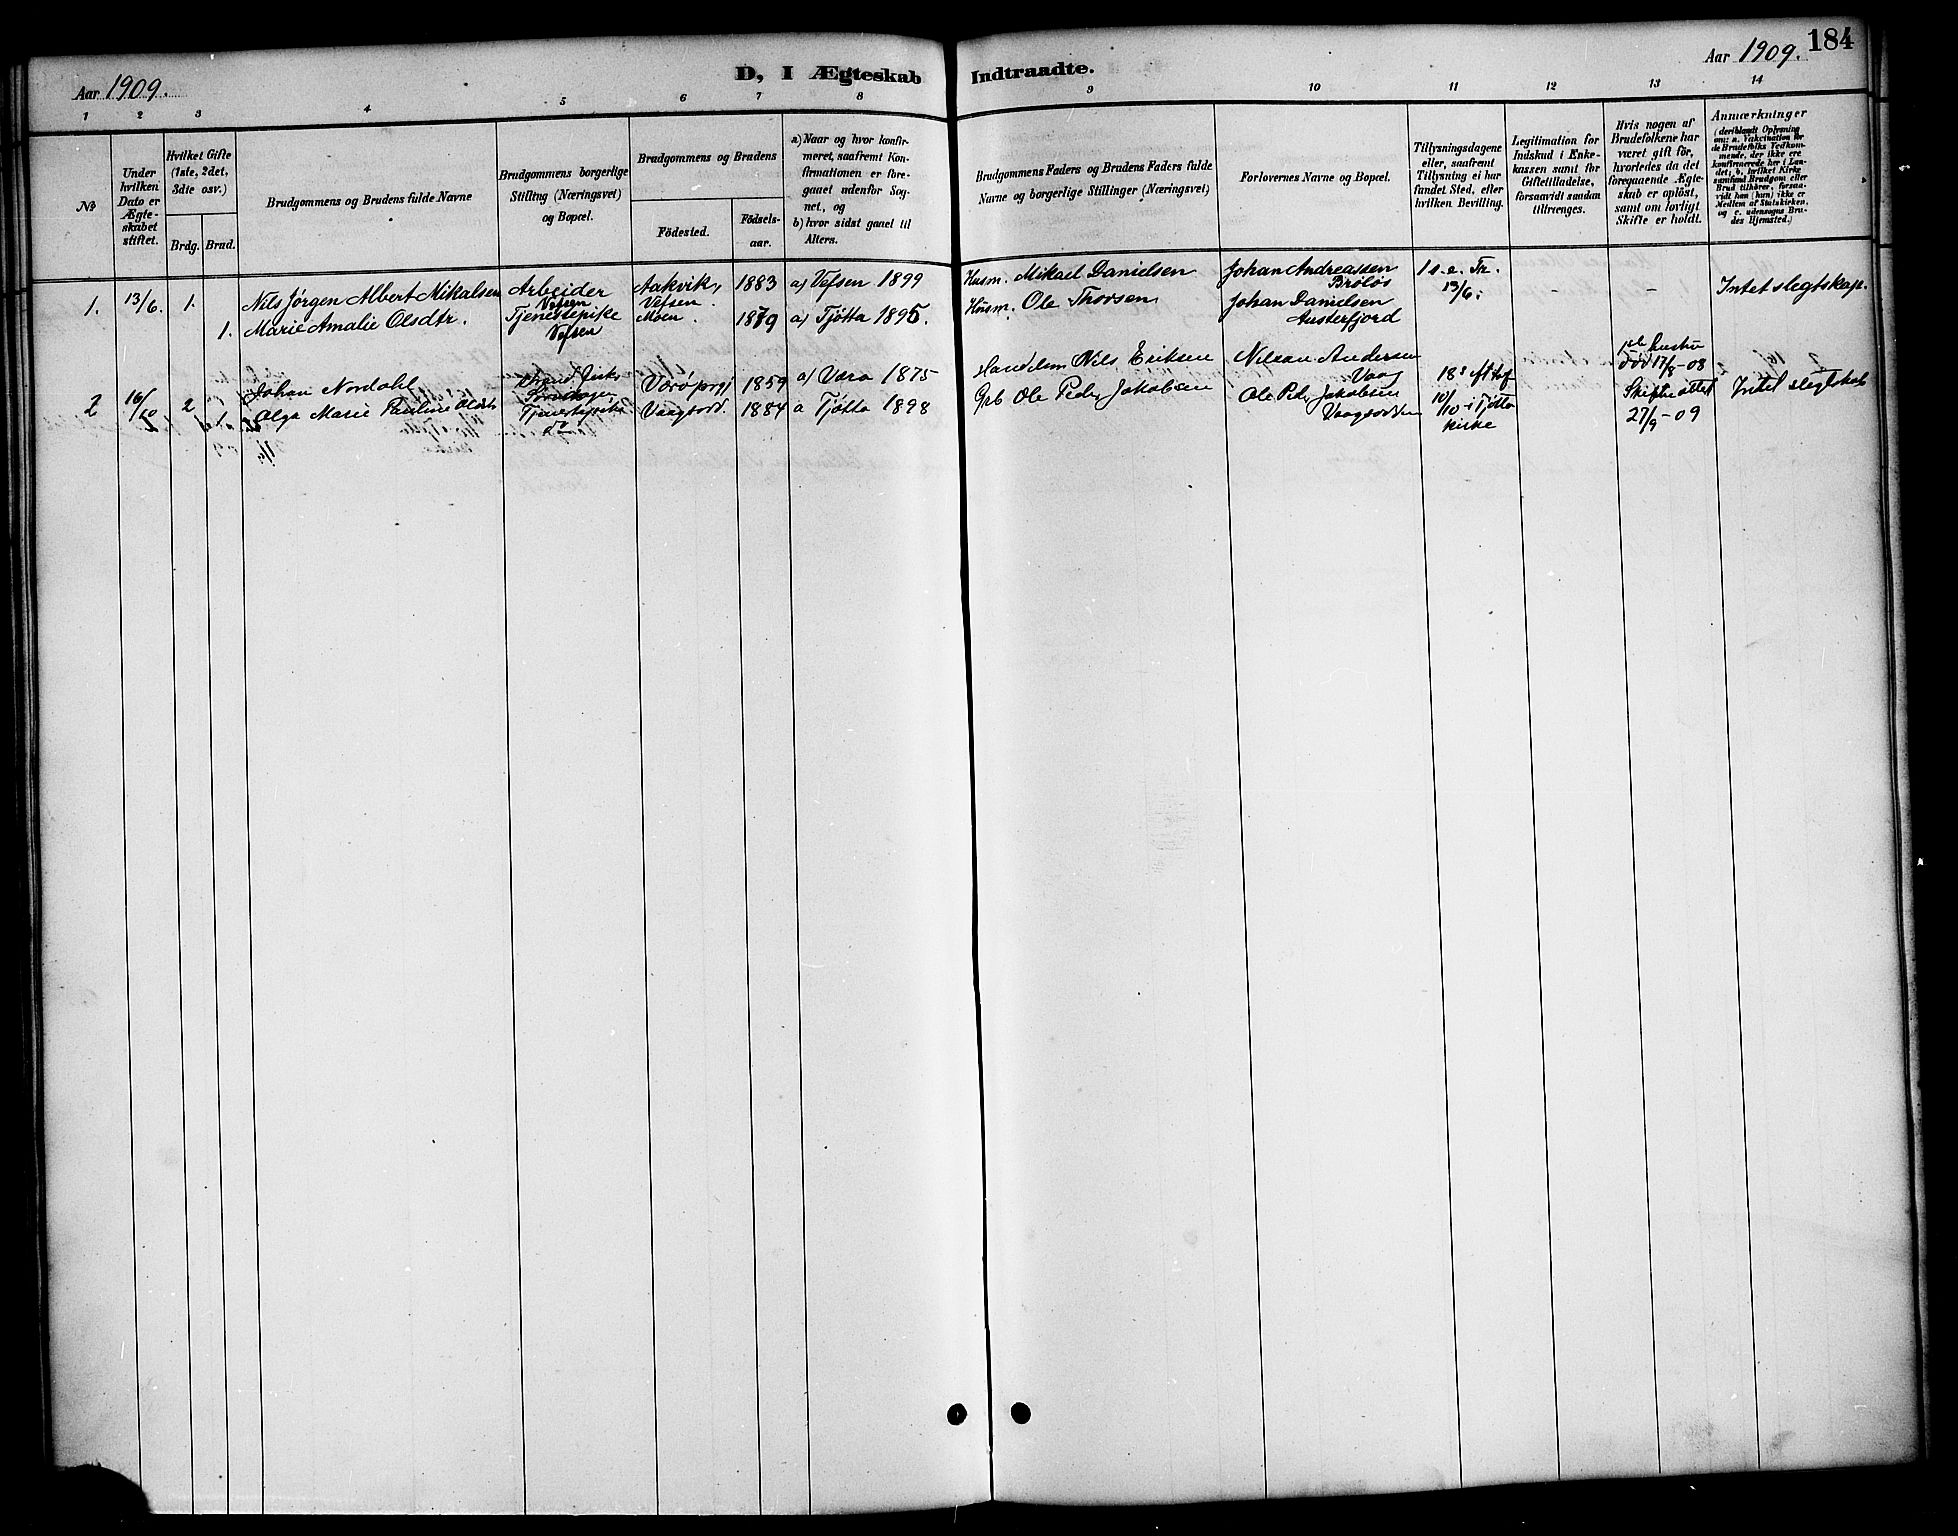 184
Aar 1909.
D, I Ægteskab
Indtraadte.
Aar 1909.
1 2 3 4 5 6 7 8 9 10 11 12 13 14
No
Under
hvilken
Dato er
Ægte-
skabet
stiftet.
Hvilket Gifte
(1ste, 2det,
3die osv.)
Brdg. Brud.
Brudgommens og Brudens fulde Navne
Brudgommens borgerlige
Stilling (Næringsvei)
og Bopæl.
Brudgommens og Brudens
Födested.
Födsels-
aar.
a) Naar og hvor konfir-
meret, saafremt Kon-
firmationen er fore-
gaaet udenfor Sog-
net, og
b) hvor sidst gaaet til
Alters.
Brudgommens Faders og Brudens Faders fulde
Navne og borgerlige Stillinger (Næringsvei)
Forlovernes Navne og Bopæl.
Tillysningsdagene
eller, saafremt
Tillysning ei har
fundet Sted, efter
hvilken Bevilling.
Legitimation for
Indskud i Enke-
kassen samt for
Giftetilladelse,
forsaavidt saadan
tiltrænges.
Hvis nogen af
Brudefolkene har
været gift för,
hvorledes da det
foregaaende Ægte-
skab er oplöst,
samt om lovligt
Skifte er holdt.
Anmærkninger
(deriblandt Oplysning
om: a. Vakcination for
de Brudefolks Vedkom-
mende, der ikke ere
konfirmerede her i Lan-
det; b. hvilket Kirke
samfund Brudgom eller
Brud tilhörer, forsaa-
vidt han (hun) ikke er
Medlem af Statskirken,
og c. udensogns Bru-
des Hjemsted.)
1. 13/6. 1. Nils Jørgen Albert Mikalsen Arbeider Vefsen Aakvik, Vefsen. 1883 a) Vefsen 1899 Husm. Mikael Danielsen Johan Andreassen Brøløs 1 s. e. Tr. 13/6. - - Intet slegtskap.
1. Marie Amalie Olsdtr. Tjenestepike Vefsen Moen. 1879 a) Tjøtta 1895. Husm. Ole Thorsen Johan Danielsen Austerfjord
2 16/10 2 Johan Nordahl 1859 a) Værø 1875 Nils Eriksen Andersen Vaag 18s eft. død 17/8-08 Intet slegtskab
1 Olga Marie Pauline do 1884 a Tjøtta 1898 Grb Ole Peder Jakobsen Ole Peder Jakobsen 10/10 i Tjøtta kirke 27/9-09